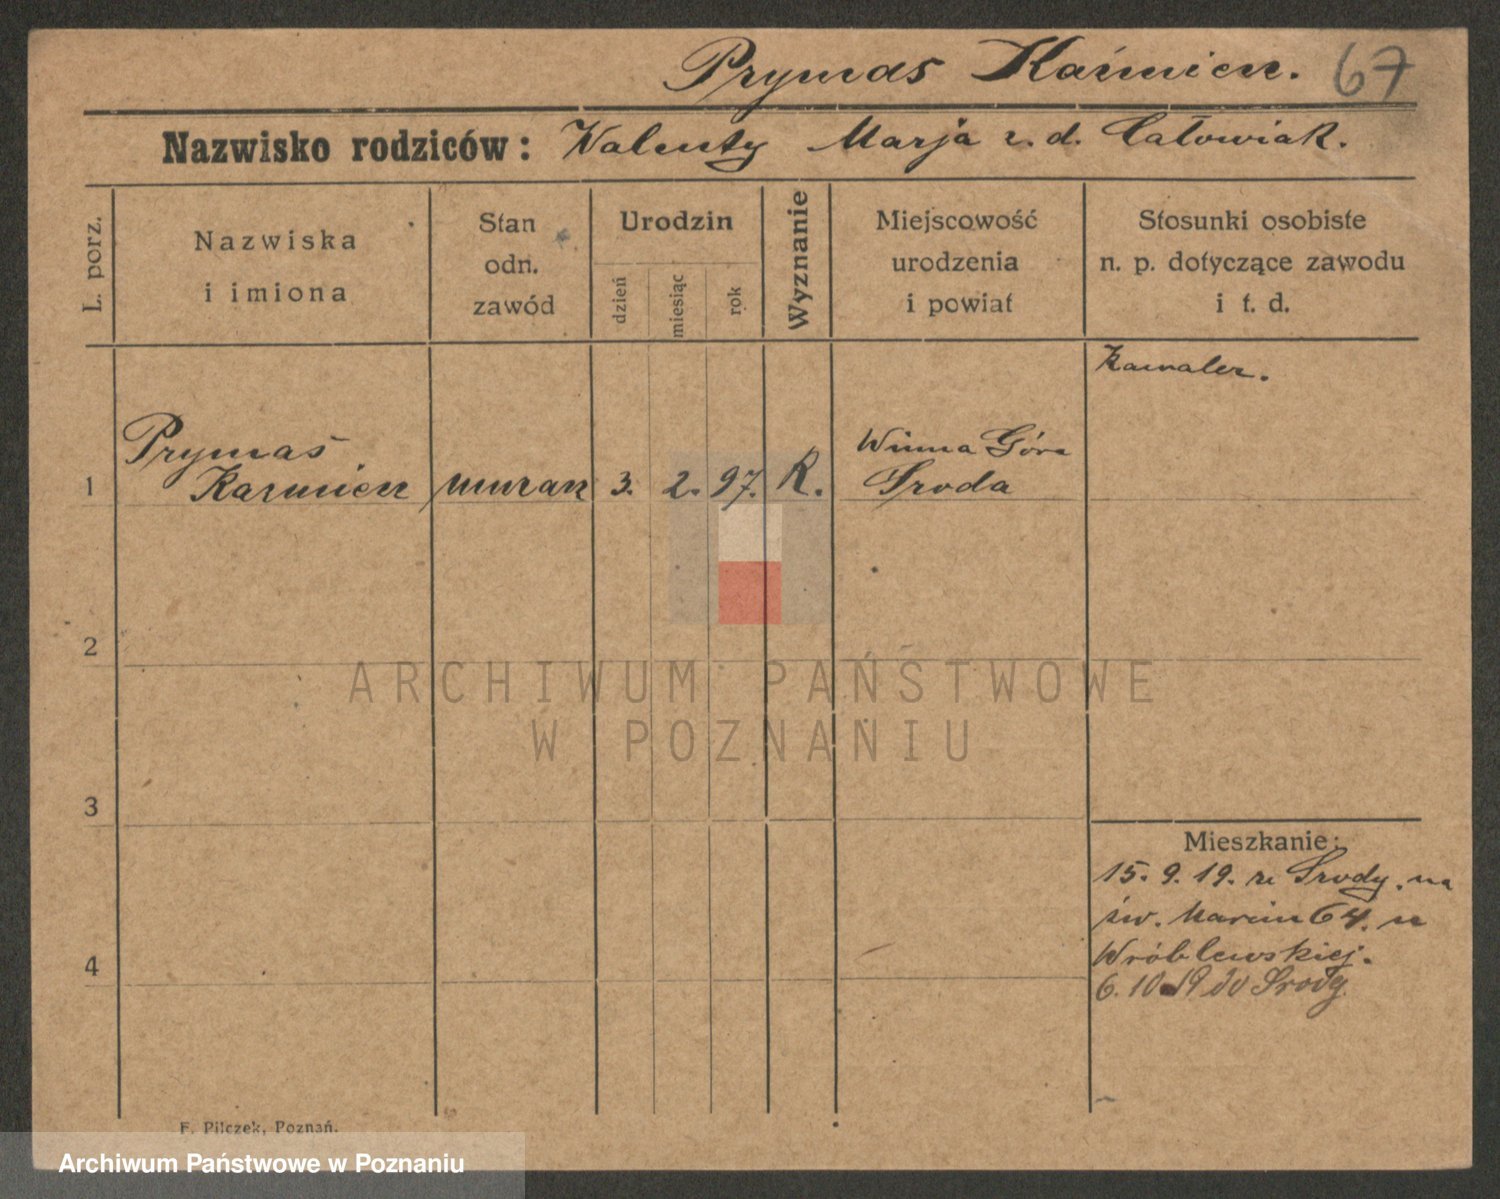 Prymas Kaźmierz. 67
Nazwisko rodziców: Walenty Marja z. d. Całowiak.
L. porz.
Nazwiska
i imiona
Stan
odn.
zawód
Urodzin
dzień
miesiąc
rok
Wyznanie
Miejscowość
urodzenia
i powiat
Stosunki osobiste
n. p. dotyczące zawodu
i t. d.
Kawaler.
Prymas
1 Kazmierz murarz 3. 2. 97. R.
Winna Góra
Sroda
2
3
4
Mieszkanie:
15. 9. 19. ze Srody. na
św. Marcin 64. u
Wróblewskiej.
6. 10 19 do Srody
F. Pilczek, Poznań.
ARCHIWUM PAŃSTWOWE
W POZNANIU
Archiwum Państwowe w Poznaniu